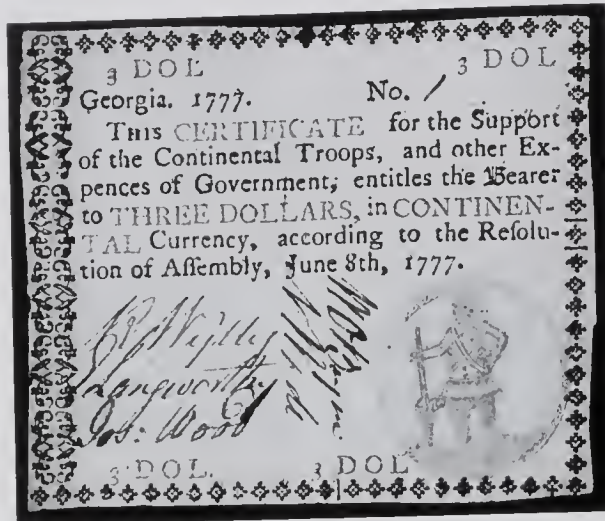 3 DOL 3 DOL
Georgia. 1777. No. 1
THIS CERTIFICATE for the Support
of the Continental Troops, and other Ex-
pences of Government, entitles the Bearer
to THREE DOLLARS, in CONTINEN-
TAL Currency, according to the Reſolu-
tion of Aſſembly, June 8th, 1777.
Wylly
Langworthy
Jos: Wood
3 DOL. 3 DOL